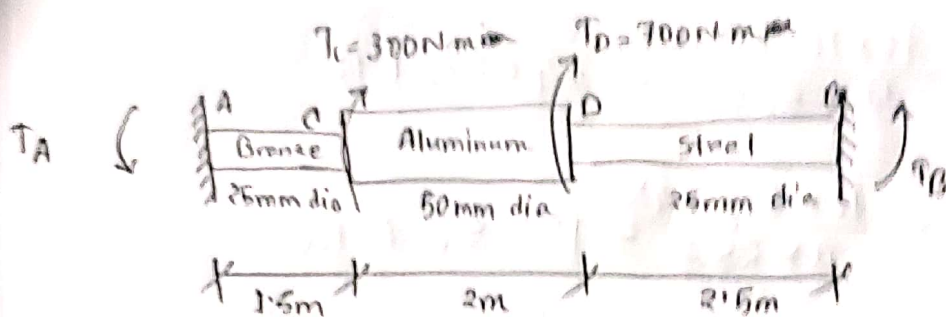 T_C = 300 N m T_D = 700 N m
T_A A C D
Bronze Aluminum Steel T_B
25mm dia 50mm dia 25mm dia
1.5m 2m 2.5m